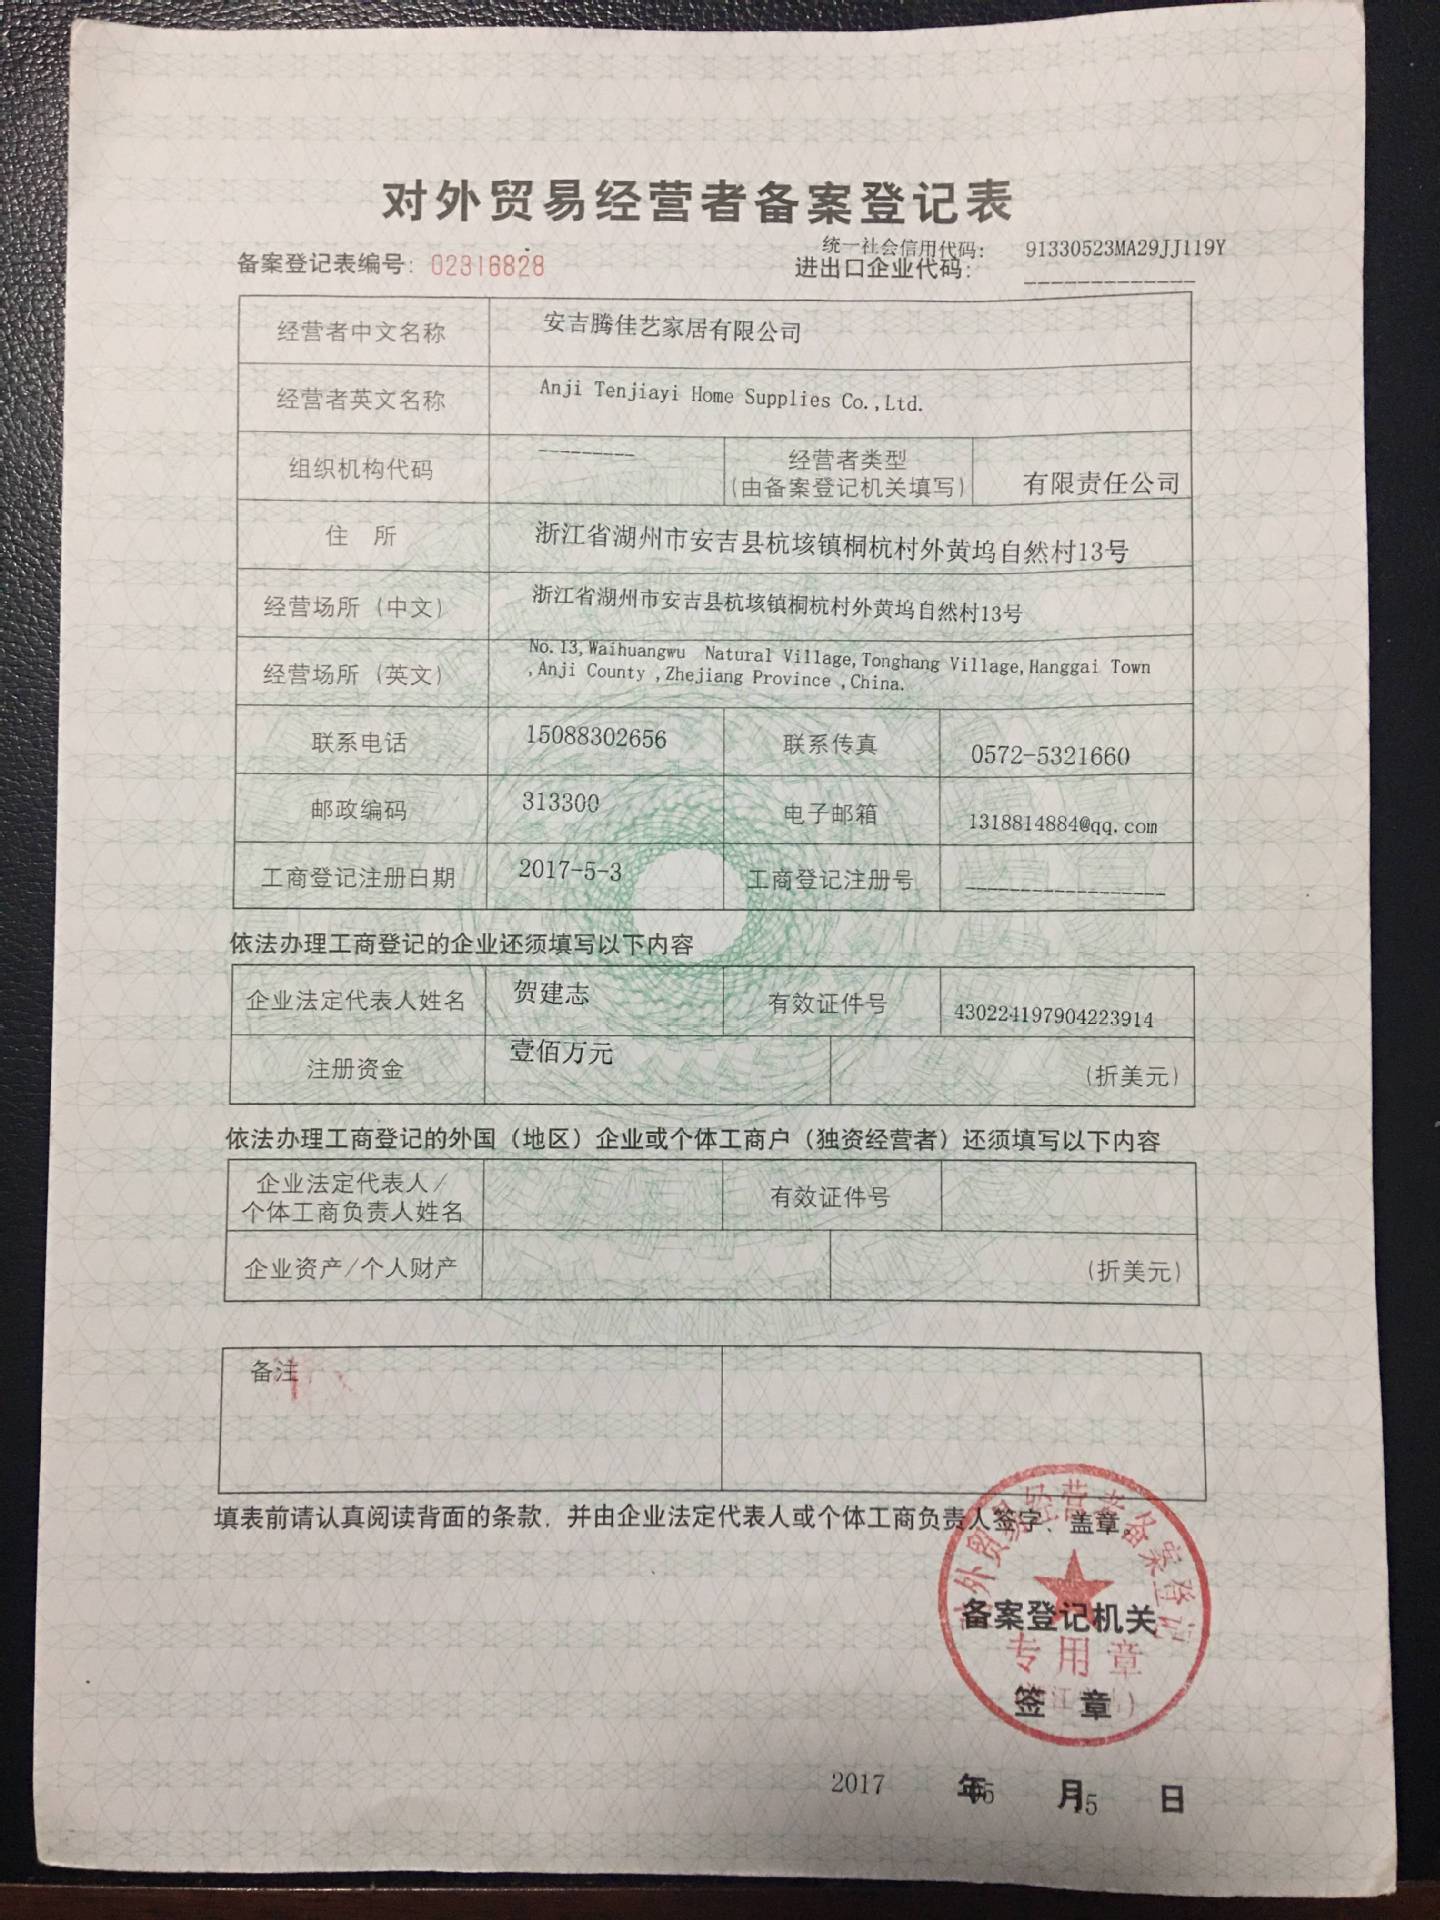 对外贸易经营者备案登记表
统一社会信用代码： 91330523MA29JJ119Y
备案登记表编号： 02316828 进出口企业代码： -------------
经营者中文名称 安吉腾佳艺家居有限公司
经营者英文名称 Anji Tenjiayi Home Supplies Co.,Ltd.
组织机构代码 --------- 经营者类型
(由备案登记机关填写) 有限责任公司
住 所 浙江省湖州市安吉县杭垓镇桐杭村外黄坞自然村13号
经营场所（中文） 浙江省湖州市安吉县杭垓镇桐杭村外黄坞自然村13号
经营场所（英文） No.13,Waihuangwu Natural Village,Tonghang Village,Hanggai Town
,Anji County ,Zhejiang Province ,China.
联系电话 15088302656 联系传真 0572-5321660
邮政编码 313300 电子邮箱 1318814884@qq.com
工商登记注册日期 2017-5-3 工商登记注册号 ------------------
依法办理工商登记的企业还须填写以下内容
企业法定代表人姓名 贺建志 有效证件号 430224197904223914
注册资金 壹佰万元 (折美元)
依法办理工商登记的外国（地区）企业或个体工商户（独资经营者）还须填写以下内容
企业法定代表人/
个体工商负责人姓名 有效证件号
企业资产/个人财产 (折美元)
备注
填表前请认真阅读背面的条款，并由企业法定代表人或个体工商负责人签字、盖章。
对外贸易经营者备案登记
备案登记机关
专用章
签 章
2017 年 5 月 5 日